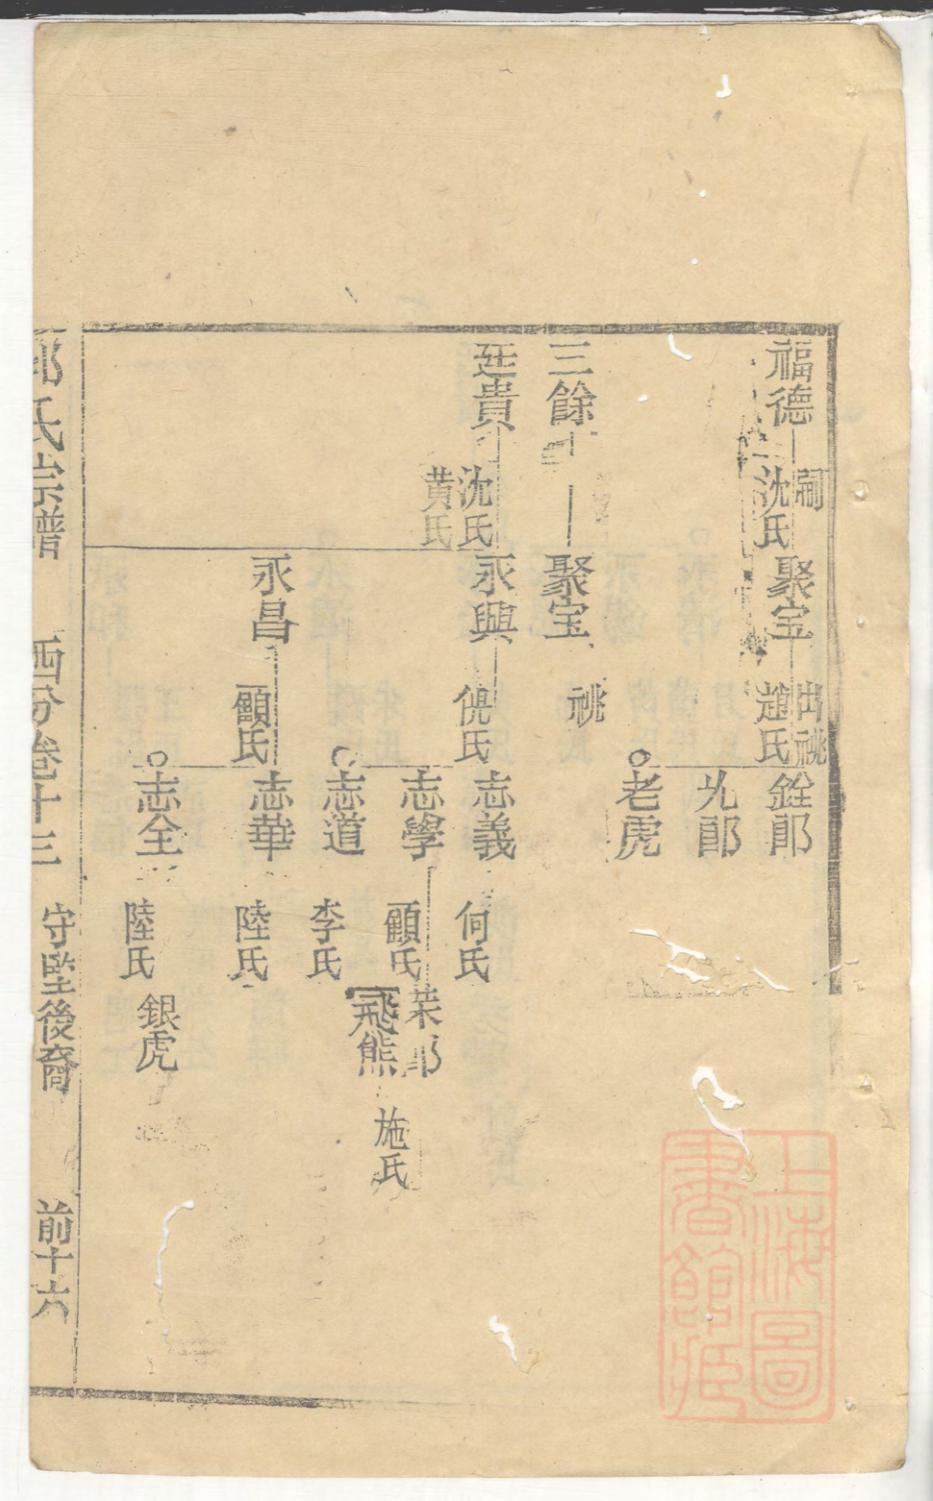 福德
嗣
沈氏
聚宝
出祧
趙氏
銓郎
九郎
老虎
三餘
聚宝
祧
廷貴
沈氏
黄氏
永興
倪氏
志義
何氏
志學
顧氏
荣郎
飛熊
施氏
志道
李氏
永昌
顧氏
志華
陸氏
志全
陸氏
銀虎
氏宗譜
西分卷十三
守堅後裔
前十六
上海圖
書館藏